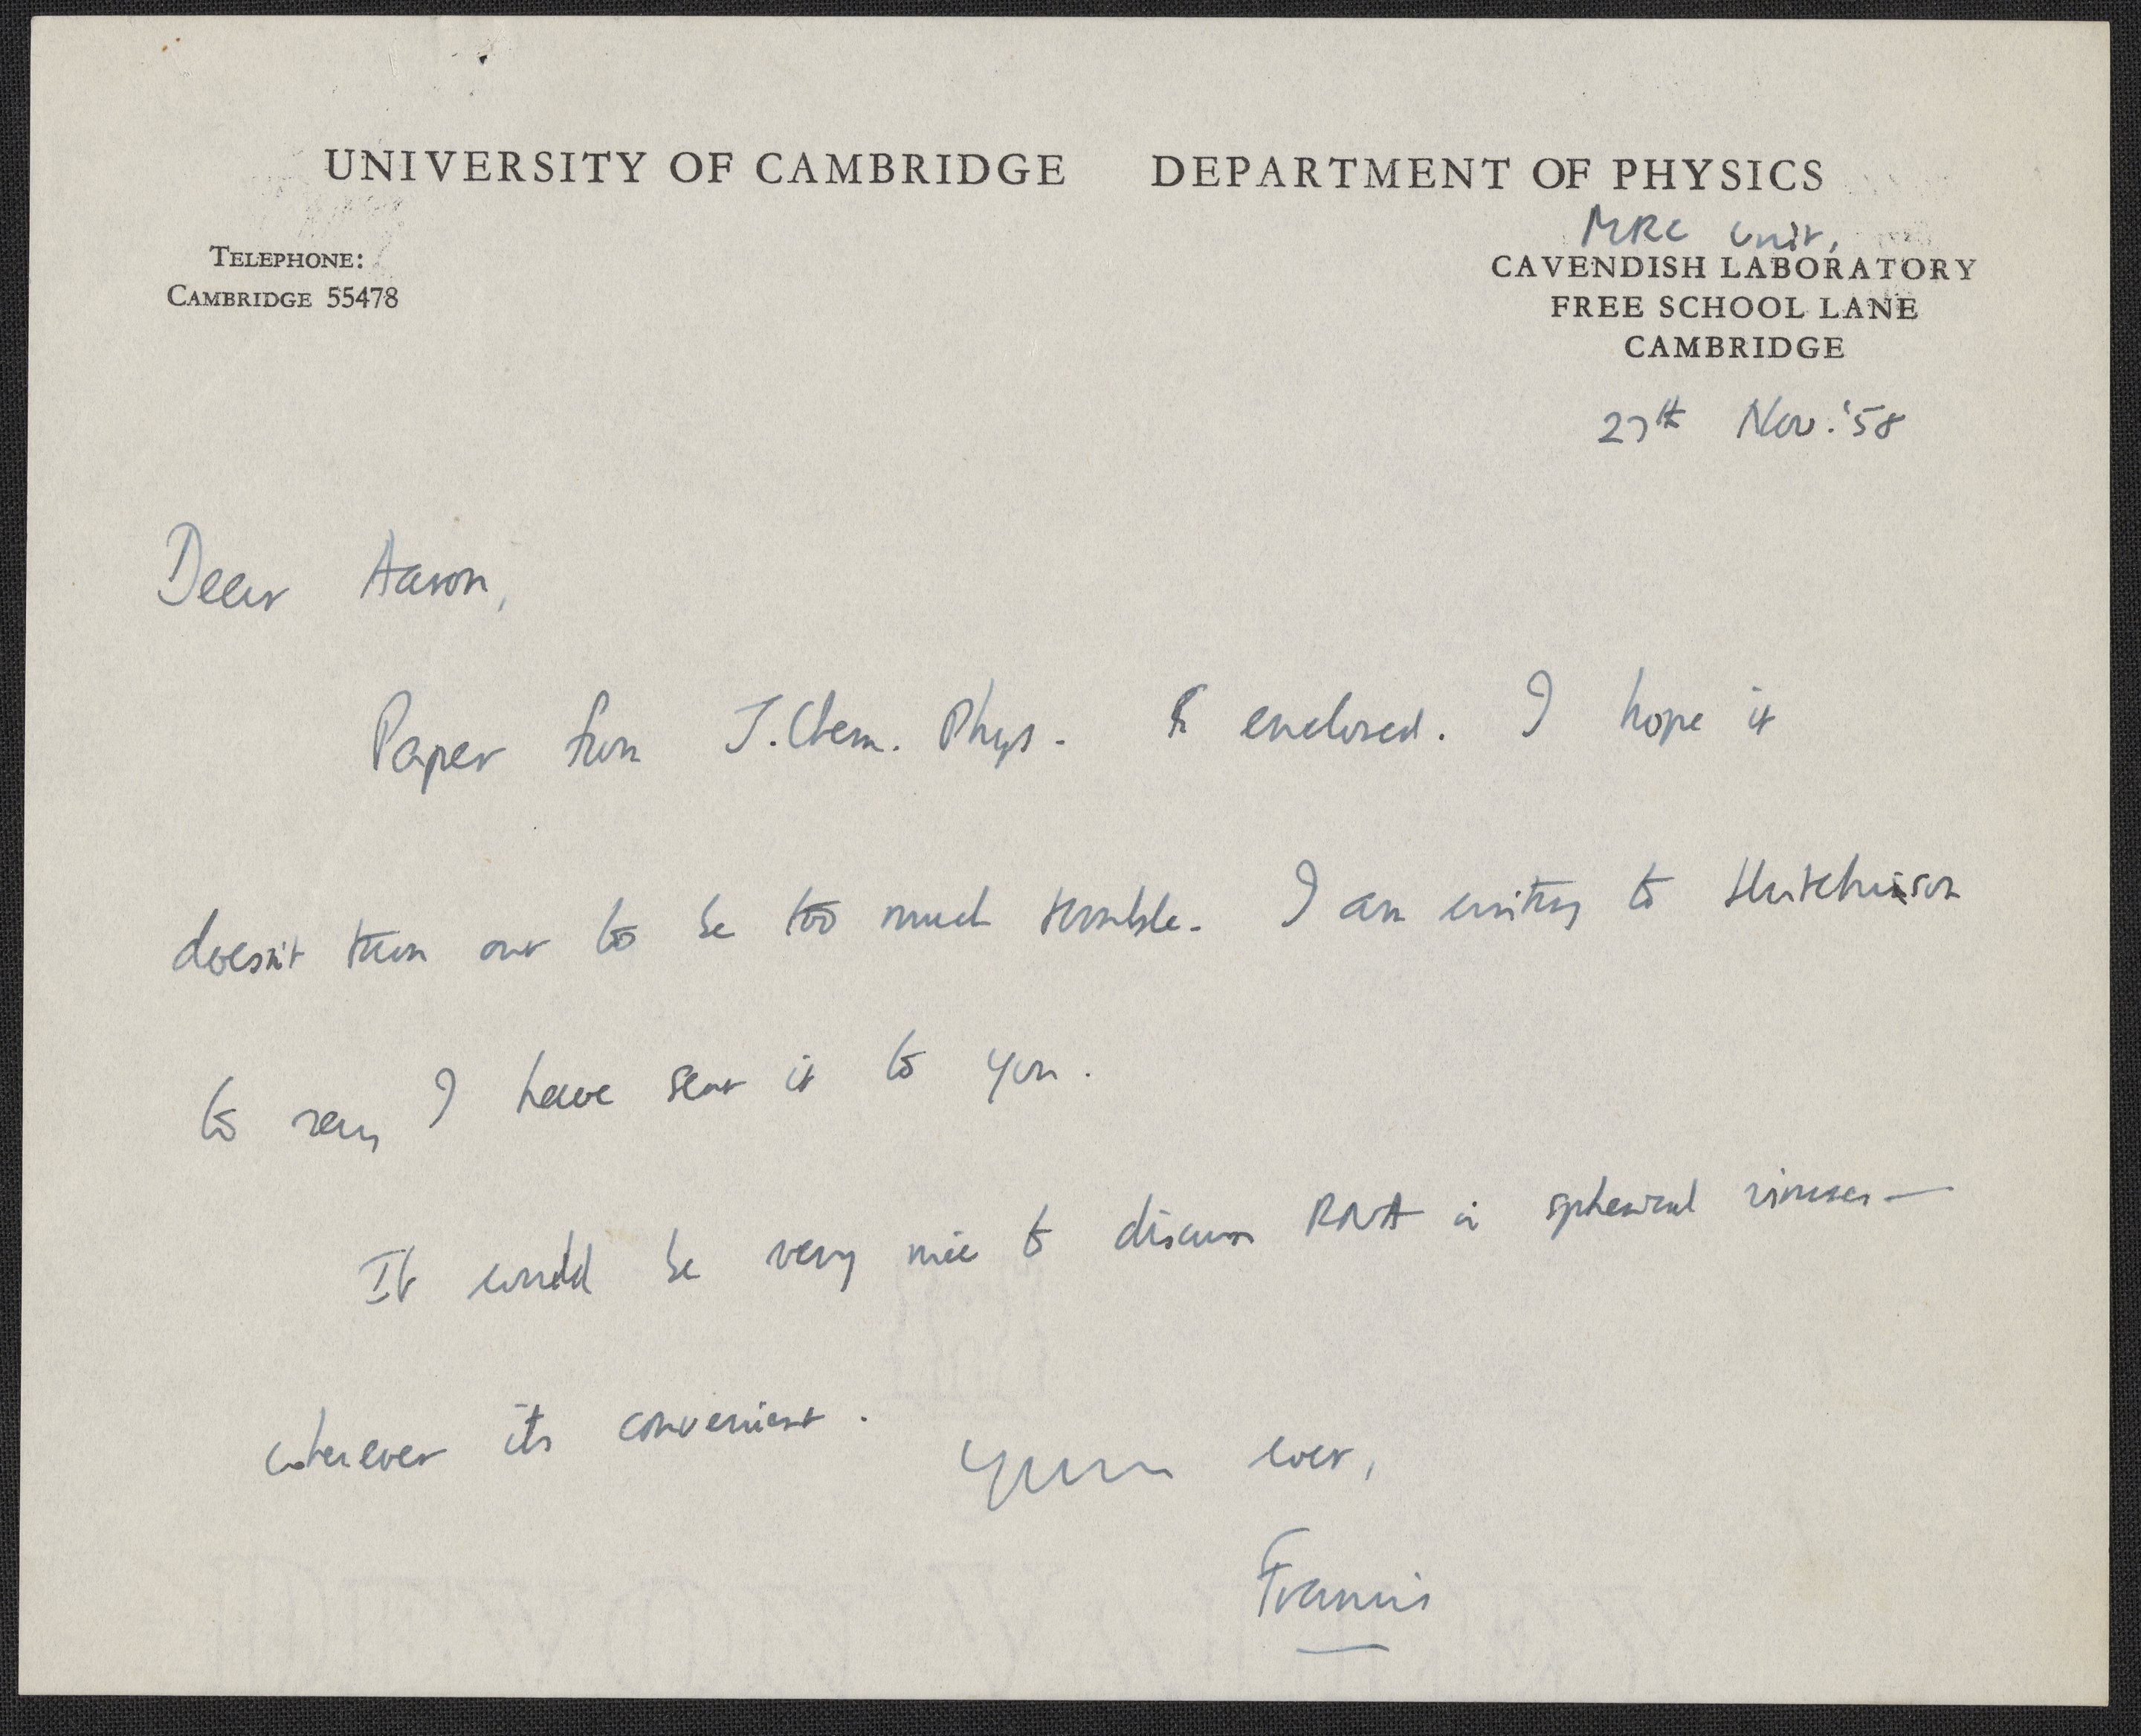 UNIVERSITY OF CAMBRIDGE DEPARTMENT OF PHYSICS
MRC Unit,
TELEPHONE:
CAMBRIDGE 55478
CAVENDISH LABORATORY
FREE SCHOOL LANE
CAMBRIDGE
27th Nov. '58
Dear Aaron,
Paper from J. Chem. Phys. is enclosed. I hope it
doesn't turn out to be too much trouble. I am writing to Hutchinson
to say I have sent it to you.
It would be very nice to discuss RNA in spherical viruses—
whenever its convenient.
Yours ever,
Francis